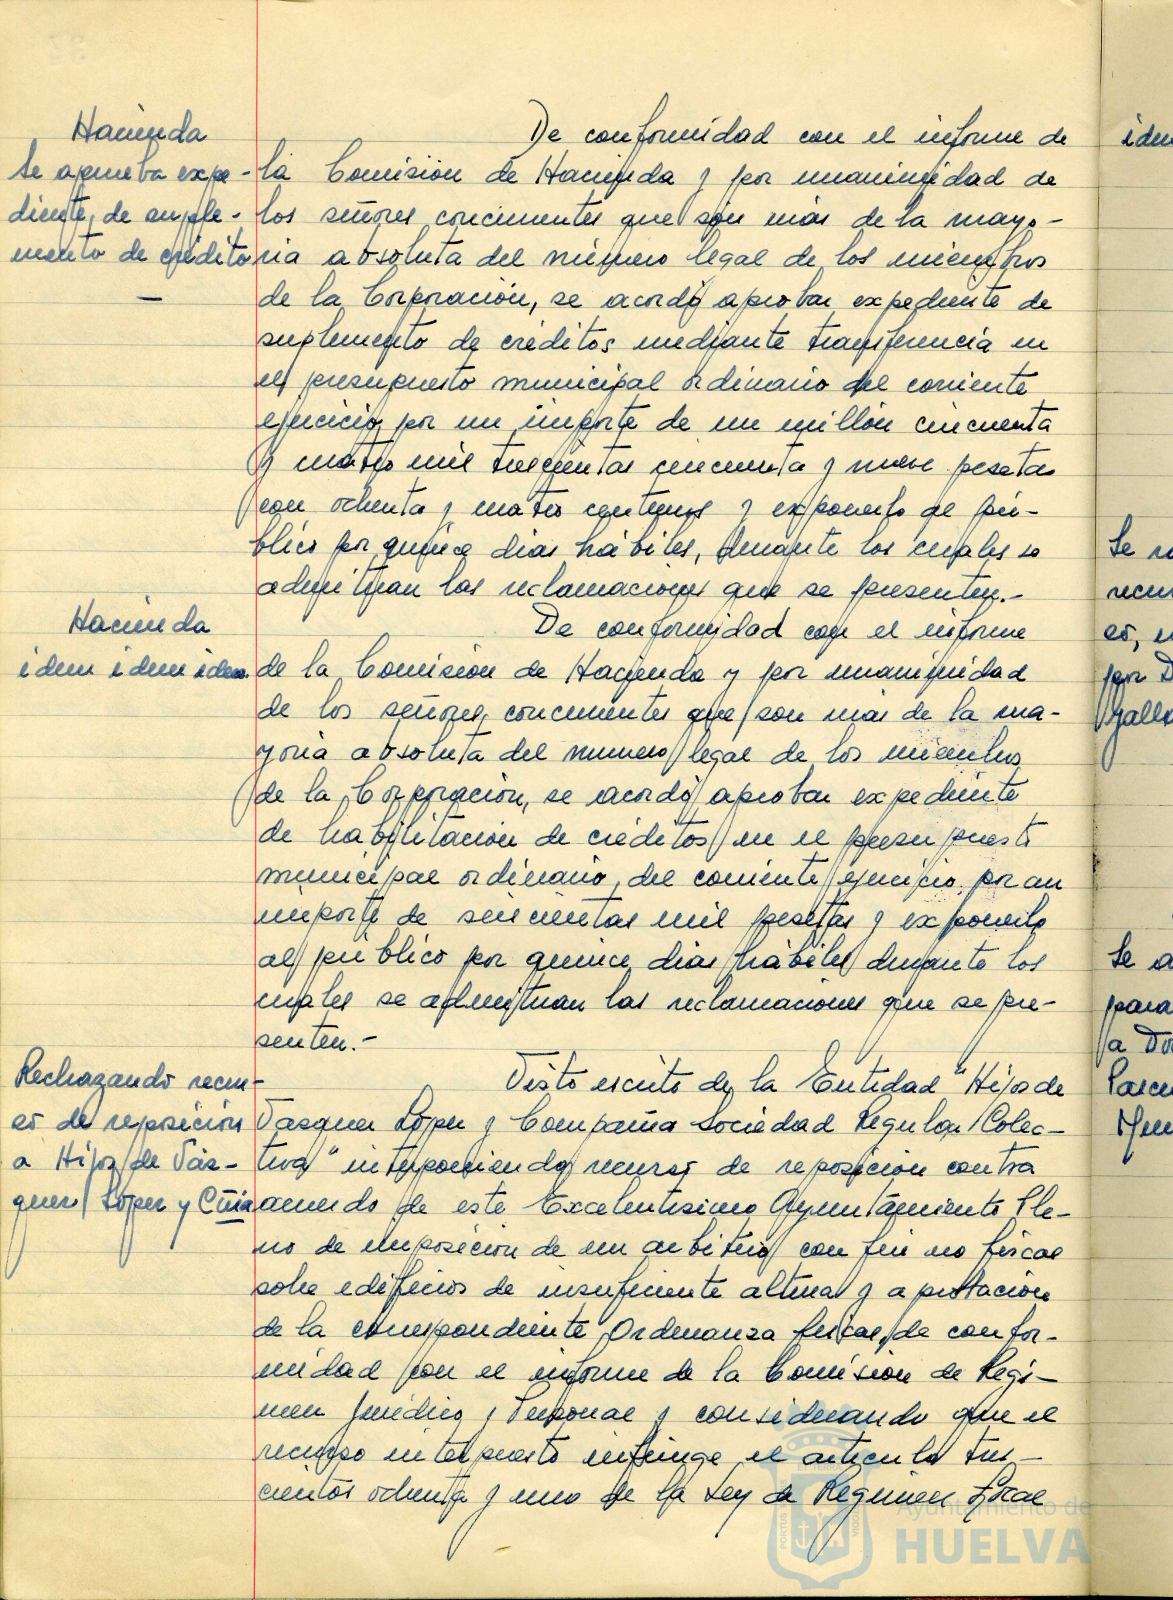 Hacienda
Se aprueba expe-
diente de suple-
mento de crédito
—
De conformidad con el informe de
la Comisión de Hacienda y por unanimidad de
los señores concurrentes que son más de la mayo-
ria absoluta del número legal de los miembros
de la Corporación, se acordó aprobar expediente de
suplemento de créditos mediante transferencia en
el presupuesto municipal ordinario del corriente
ejercicio por un importe de un millón cincuenta
y cuatro mil trescientas cincuenta y nueve pesetas
con ochenta y cuatro centimos y exponerlo al pú-
blico por quince dias hábiles, durante los cuales se
admitiran las reclamaciones que se presenten.-
Hacienda
idem idem idem
De conformidad con el informe
de la Comisión de Hacienda y por unanimidad
de los señores concurrentes que son más de la ma-
yoria absoluta del numero legal de los miembros
de la Corporación, se acordó aprobar expediente
de habilitación de créditos en el presupuesto
municipal ordinario del corriente ejercicio por un
importe de seiscientas mil pesetas y exponerlo
al público por quince dias hábiles durante los
cuales se admitiran las reclamaciones que se pre-
senten.-
Rechazando recur-
so de reposición
a Hijos de Vás-
quez López y Cñia
Visto escrito de la Entidad "Hijos de
Vasquez López y Compañia Sociedad Regular Colec-
tiva" interponiendo recurso de reposición contra
acuerdo de este Excelentisimo Ayuntámiento Ple-
no de imposición de un arbitrio con fin no fiscal
sobre edificios de insuficiente altura y aprobación
de la correspondiente Ordenanza fiscal, de confor-
midad con el informe de la Comisión de Regi-
men Juridico y Personal y considerando que el
recurso interpuesto infringe el articulo tres-
cientos ochenta y uno de la Ley de Regimen Local
idem
Se
recur
so,
por D
Gallo
Se a
para
a Do
Pascu
Ayuntamiento de
HUELVA